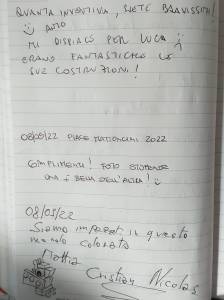 QUANTA INVENTIVA, SIETE BRAVISSIMI!
MI DISPIACE PER LUCA
ERANO FANTASTICHE LE
SUE COSTRUZIONI!
08/05/22 2022
COMPLIMENTI! FOTO STUPENDE
UNA + BELLA DELL'ALTRA!
08/05/22
Siamo in questo
mondo colorato
Mattia
Cristian Nicolas